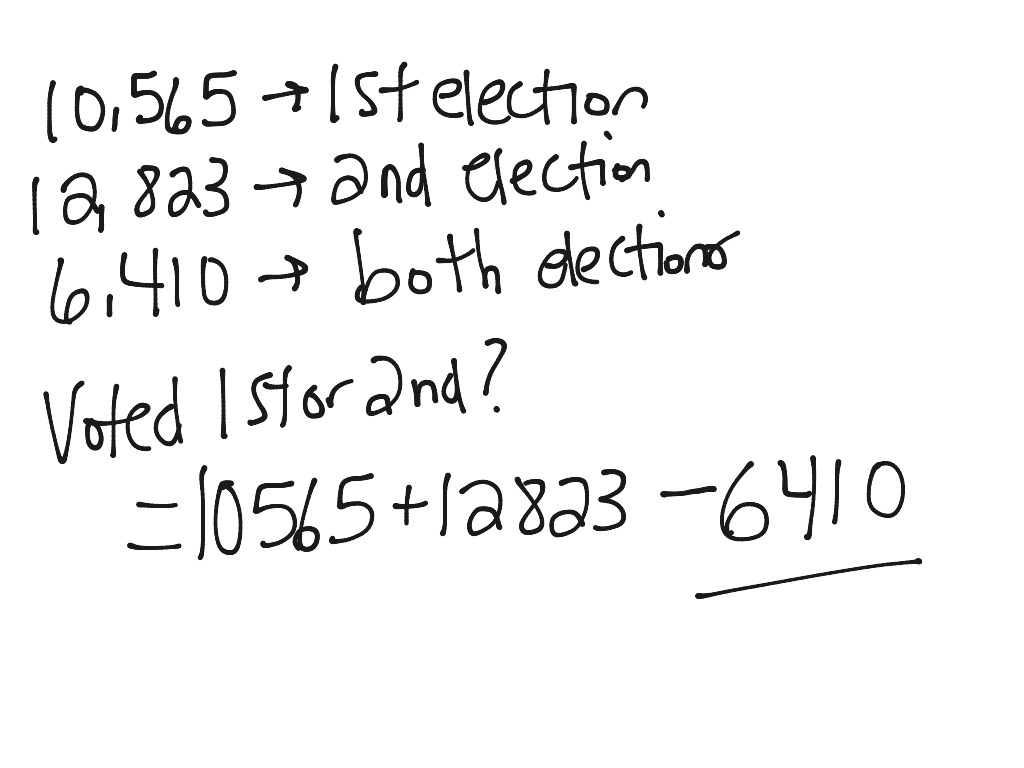 10,565 → 1st election
12,823 → 2nd election
6,410 → both elections
Voted 1st or 2nd?
=10565+12823-6410